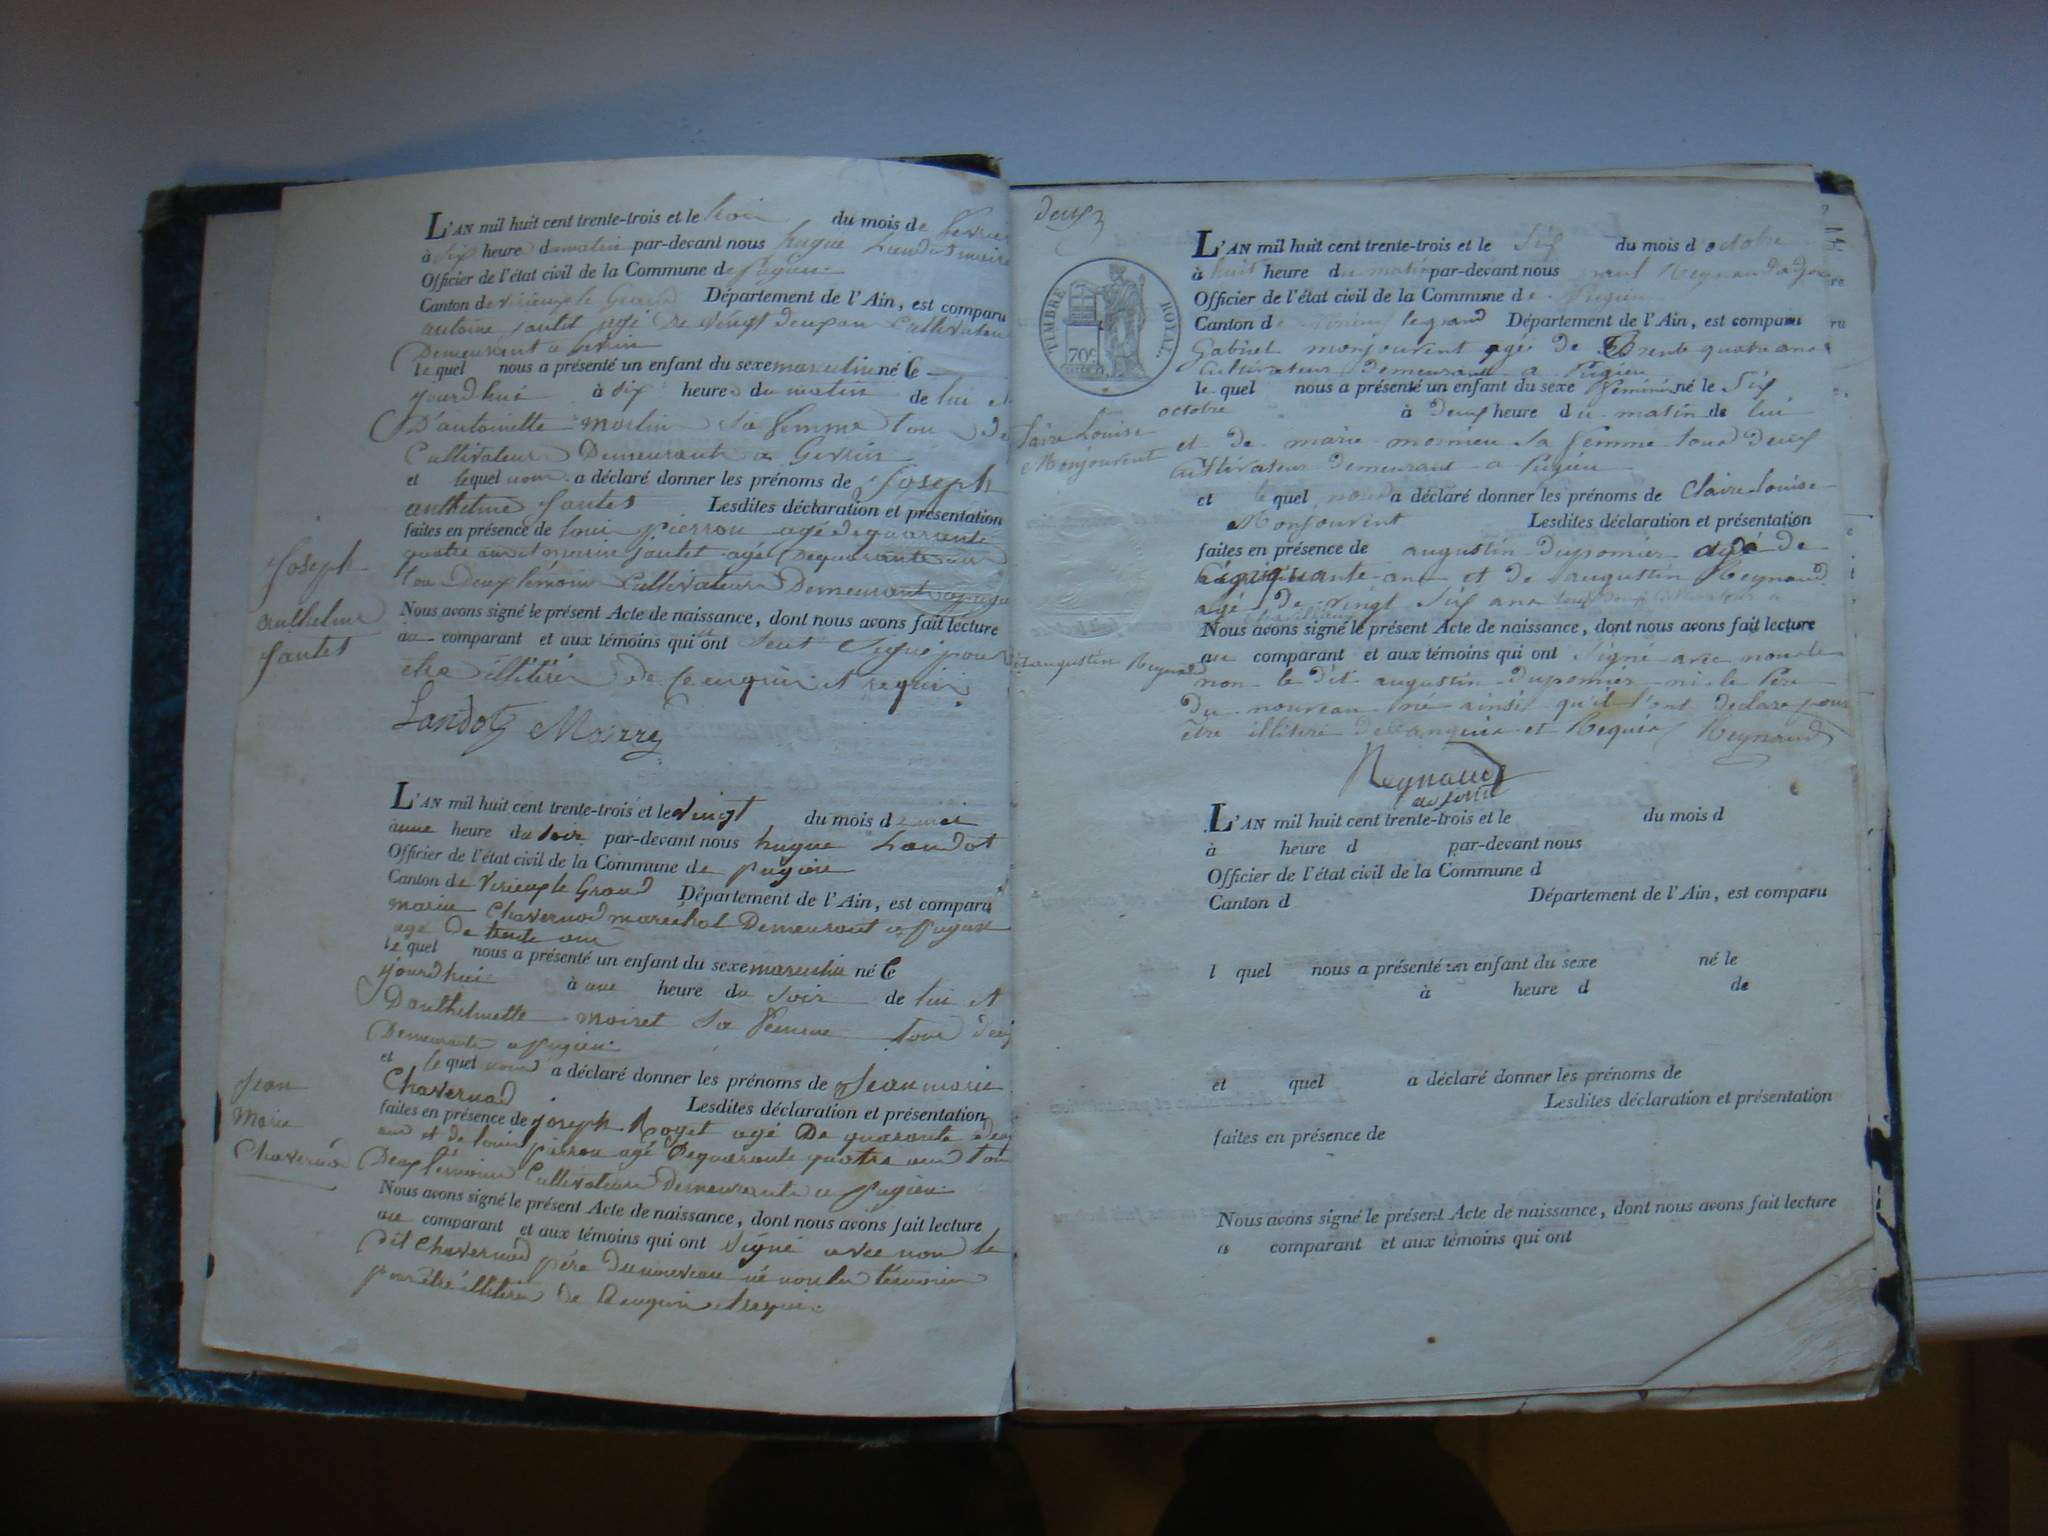 L'AN mil huit cent trente-trois et le trois du mois de fevrier
à dix heure du matin par-devant nous hugue Landot maire
Officier de l'état civil de la Commune de Pugieu
Canton de virieux le Grand Département de l'Ain, est comparu
antoine jantet agé De vingt deux an Cultivateur
Demeurant a
le quel nous a présenté un enfant du sexe masculin né le
jourdhui à dix heure du matin de lui et
D'antoinette morlin sa femme tou de
Cultivateur Demeurant a
et lequel nous a déclaré donner les prénoms de Joseph
anthelme Jantet Lesdites déclaration et présentation
faites en présence de loui pierron agé de quarante
quatre an et marin jantet agé De quarante an
tou Deux témoin Cultivateur Demeurant a pugieu
Joseph
anthelme
Jantet
Nous avons signé le présent Acte de naissance, dont nous avons fait lecture
au comparant et aux témoins qui ont seul signe pour
etre illitéré de ce enquri et requri
Landot Mairre
L'AN mil huit cent trente-trois et le vingt du mois de mai
a une heure du soir par-devant nous hugue Landot
Officier de l'état civil de la Commune de pugieu
Canton de Virieux le Grand Département de l'Ain, est comparu
marin Chavernod marechal Demeurant a pugieu
agé De trente an
le quel nous a présenté un enfant du sexe masculin né le
jourdhui à une heure du soir de lui et
Danthelmette moiret sa femme tous deux
Demeurant a pugieu
et le quel nous a déclaré donner les prénoms de Jean marie
Chavernod Lesdites déclaration et présentation
faites en présence de joseph Royet agé De quarante deux
an et de louis pierron agé De quarante quatre an tou
Deux témoin Cultivateur Demeurant a pugieu
Jean
Marie
Chavernod
Nous avons signé le présent Acte de naissance, dont nous avons fait lecture
au comparant et aux témoins qui ont signé avec nou le
dit Chavernod pére du nouveau né non les témoin
pour être illitéré de ce enquri et requri
deux
TIMBRE ROYAL
70c
L'AN mil huit cent trente-trois et le Six du mois d octobre
à huit heure du matin par-devant nous paul Reynaud adjoint
Officier de l'état civil de la Commune de Pugieu
Canton de virieux legrand Département de l'Ain, est comparu
Gabriel monjouvent agé de Trente quatre ans
Cultivateur demeurant a Pugieu
le quel nous a présenté un enfant du sexe féminin né le Six
octobre à deux heure du matin de lui
et de marie monnieu sa femme tous deux
cultivateur demeurant a Pugieu
Claire Louise
Monjouvent
et le quel nous a déclaré donner les prénoms de Claire Louise
Monjouvent Lesdites déclaration et présentation
faites en présence de augustin duponnier agé de
cinquante ans et de augustin Reynaud
agé de vingt six ans
Nous avons signé le présent Acte de naissance, dont nous avons fait lecture
au comparant et aux témoins qui ont signé avec nous le
dit augustin Reynaud
non le dit augustin duponnier ni le Père
du nouveau né ainsi qu'il l'ont declaré pour
être illitéré de ce anquis et Requis Reynaud
Reynaud
adjoint
L'AN mil huit cent trente-trois et le du mois d
à heure d par-devant nous
Officier de l'état civil de la Commune d
Canton d Département de l'Ain, est comparu
l quel nous a présenté un enfant du sexe né le
à heure d de
et quel a déclaré donner les prénoms de
Lesdites déclaration et présentation
faites en présence de
Nous avons signé le présent Acte de naissance, dont nous avons fait lecture
a comparant et aux témoins qui ont